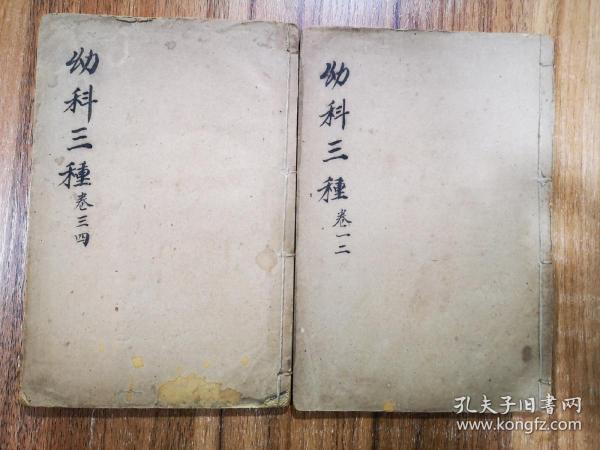 幼科三種
卷三四
幼科三種
卷一二
孔夫子旧書网
www.kongfz.com